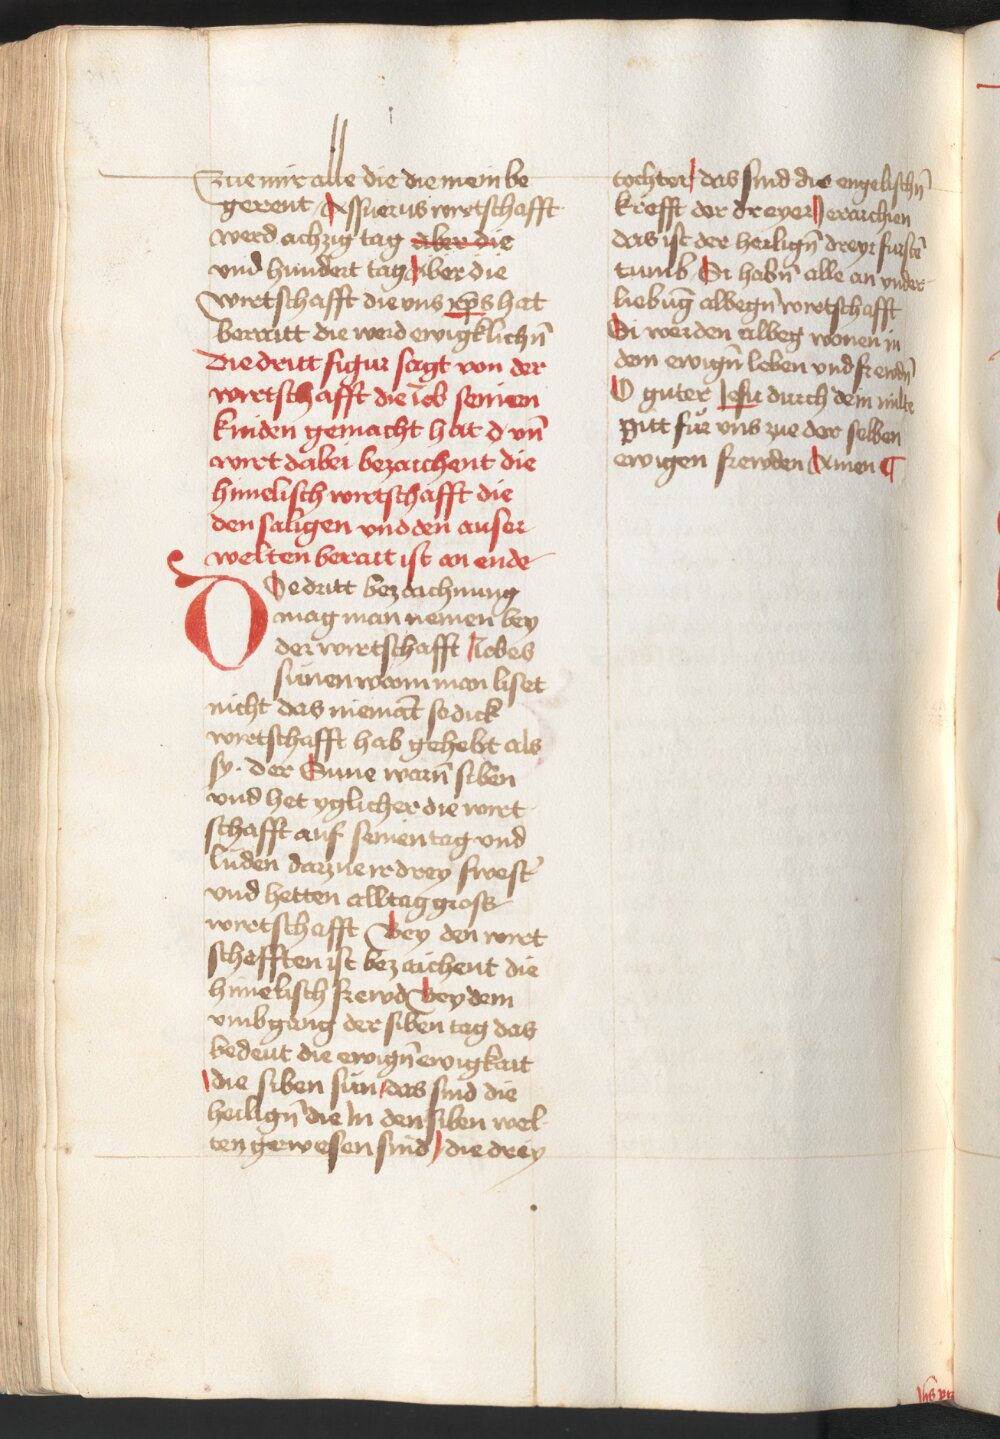 zue mir alle die die mein be
gerent Assuerus wirtschafft
werd achzig tag aber die
und hundert tag aber die
wirtschafft die uns xp̄s hat
beraitt die werd ewigklichn̄
Die dritt figur sagt von der
wirtschafft die iob seinen
kinden gemacht hat d vn̄
wirt dabei bezaichent die
himelisch wirtschafft die
den saligen und den auser
welten berait ist an ende
Die dritt bezaichnung
mag man nemen bey
der wirtschafft iobes
sünen wann man liset
nicht das niemāt so dick
wirtschafft hab gehebt als
sy. der Sune warn̄ siben
und het yglicher die wirt
schafft auf seinen tag und
lüden darzue ir drey swest̄
und hetten alltag gross
wirtschafft Bey den wirt
schafften ist bezaichent die
himelisch frewd Bey dem
umbgang der siben tag das
bedeut die ewign̄ ewigkait
die siben sün das sind die
heilign̄ die in den siben wel
ten gewesen sind die drey
tochter das sind die engelischn̄
krefft der dreyer Jerarchien
das ist der heilign̄ dreyr fursтē
tumb Di habn̄ alle an under
liebūg albegn̄ wirtschafft
Di werden albeg wonen in
dem ewign̄ leben und frewdn̄
O guter Jesu durch dein milte
pitt für uns zue der selben
ewigen frewden Amen ¶